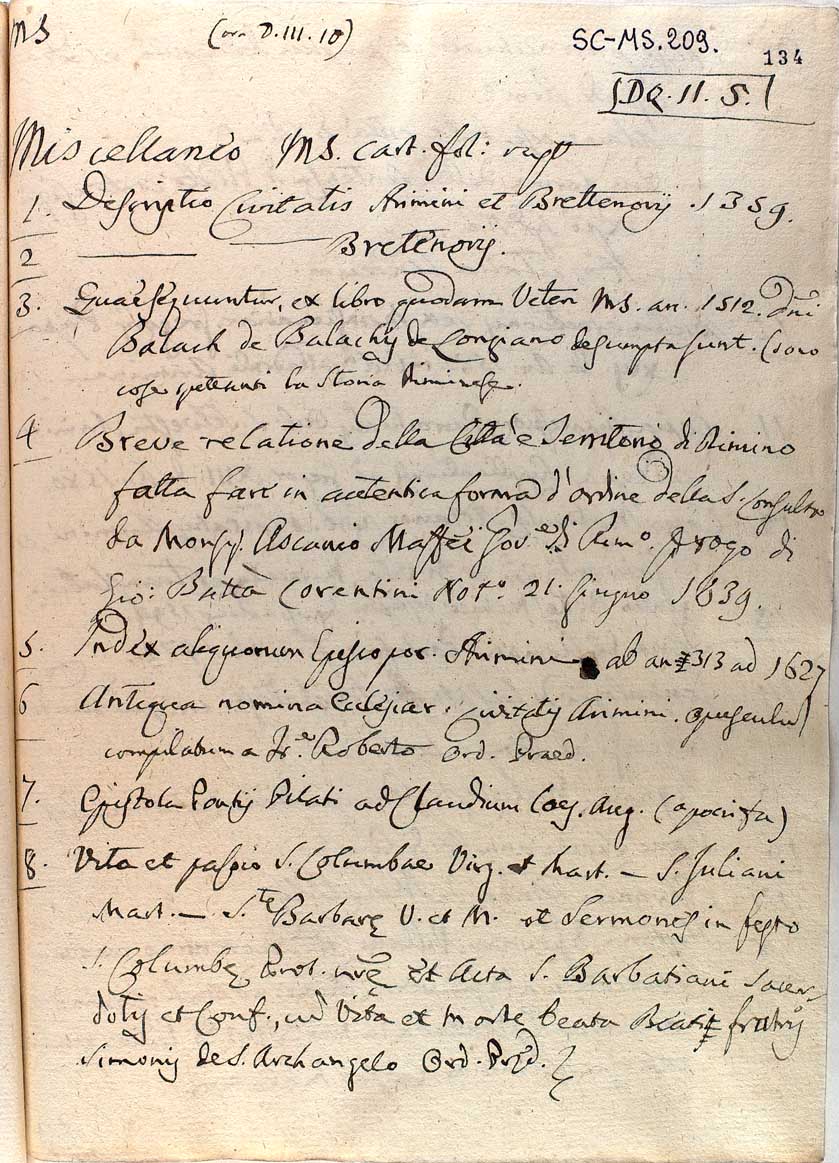 MS (ora D.III.10) SC-MS. 209. 134
DQ. II. 5.
Miscellaneo MS. cart. fol:
1. Descriptio Civitatis Arimini et Brettenorij. 1359.
2 Bretenorij.
3. Quae sequuntur, ex libro quodam Veteri MS. an. 1512. Dni
Balach de Balachij de Longiano desumpta sunt. (sono
cose spettanti la Storia Riminese.
4 Breve relatione della Città e Territorio di Rimino
fatta fare in autentica forma d'ordine della S. Consulta
da Monsr. Ascanio Maffei Gove. di Rimo. Rogo di
Gio: Batta Corentini Noto. 21. Giugno 1639.
5. Index aliquorum Episcopor. Arimini ab an. 313 ad 1627
6 Antiqua nomina Eccles̄iar. Civitatis Arimini. opusculū
compilatum a Fr.e Roberto Ord. Praed.
7. Epistola Pontij Pilati ad Claudium Caes. Aug. (apocrifa)
8. Vita et passio S. Columbae Virg. et Mart. — S. Juliani
Mart. — S.te Barbarę V. et M. et Sermones in festo
S. Columbę Prot. nrę et Acta S. Barbatiani Sacer-
dotis et Conf., Vita et morte beata Beati fratris
Simonis de S. Archangelo Ord. Pręd.